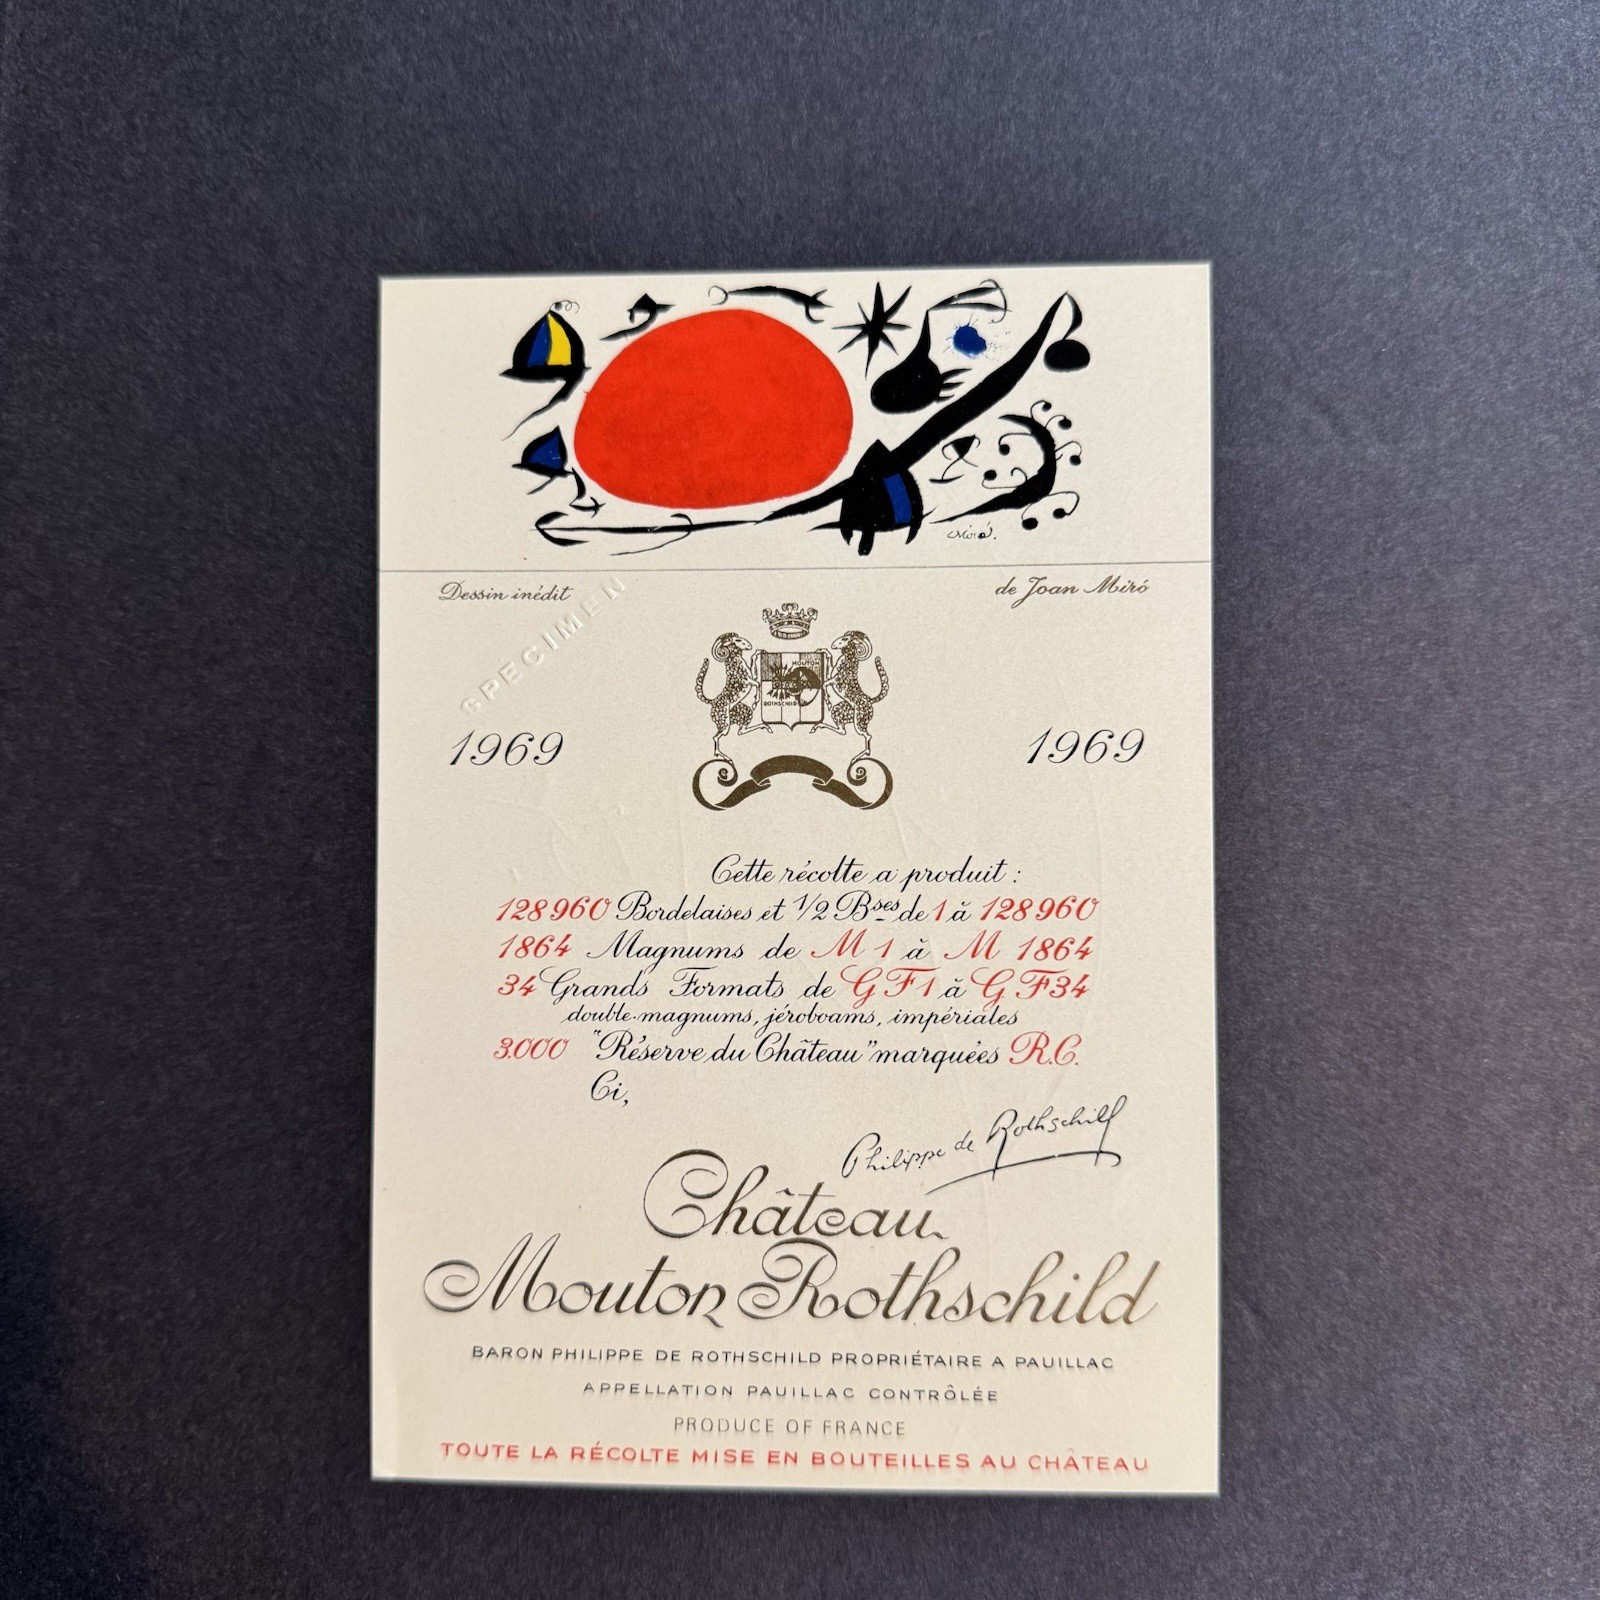 Miró.
Dessin inédit
de Joan Miró
SPECIMEN
MOUTON
ROTHSCHILD
1969
1969
Cette récolte a produit :
128960 Bordelaises et 1/2 Bses de 1 à 128960
1864 Magnums de M 1 à M 1864
34 Grands Formats de G F 1 à G F 34
double-magnums, jéroboams, impériales
3.000 "Réserve du Château" marquées R.C.
Ci,
Philippe de Rothschild
Château
Mouton Rothschild
BARON PHILIPPE DE ROTHSCHILD PROPRIÉTAIRE A PAUILLAC
APPELLATION PAUILLAC CONTRÔLÉE
PRODUCE OF FRANCE
TOUTE LA RÉCOLTE MISE EN BOUTEILLES AU CHÂTEAU